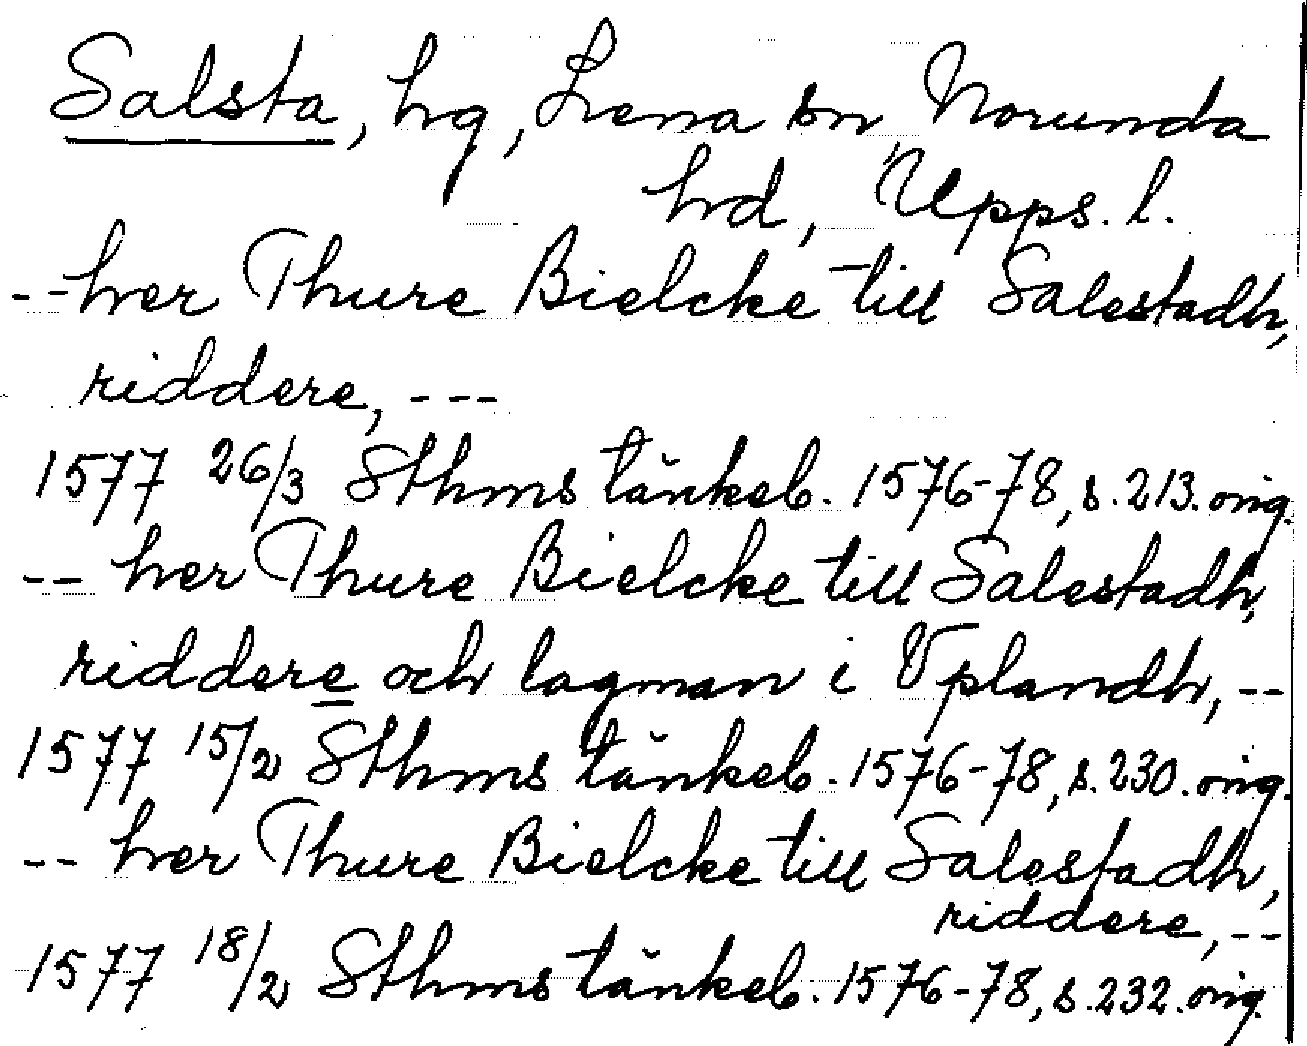 Salsta, hg, Lena sn, Norunda
hrd, Upps. l.
-- her Thure Bielcke till Salestadh,
riddere, ---
1577 26/3 Sthms tänkeb. 1576-78, s. 213. orig.
-- her Thure Bielcke till Salestadh,
riddere och lagman i Vplandh, --
1577 15/2 Sthms tänkeb. 1576-78, s. 230. orig.
-- her Thure Bielcke till Salestadh,
riddere, --
1577 18/2 Sthms tänkeb. 1576-78, s. 232. orig.